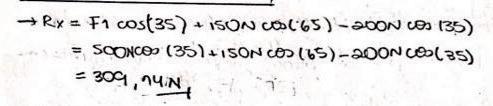 → Rx = F1 cos(35) + 150N cos(65) - 200N cos (35)
= 500N cos (35) + 150N cos (65) - 200N cos(35)
= 309,14N